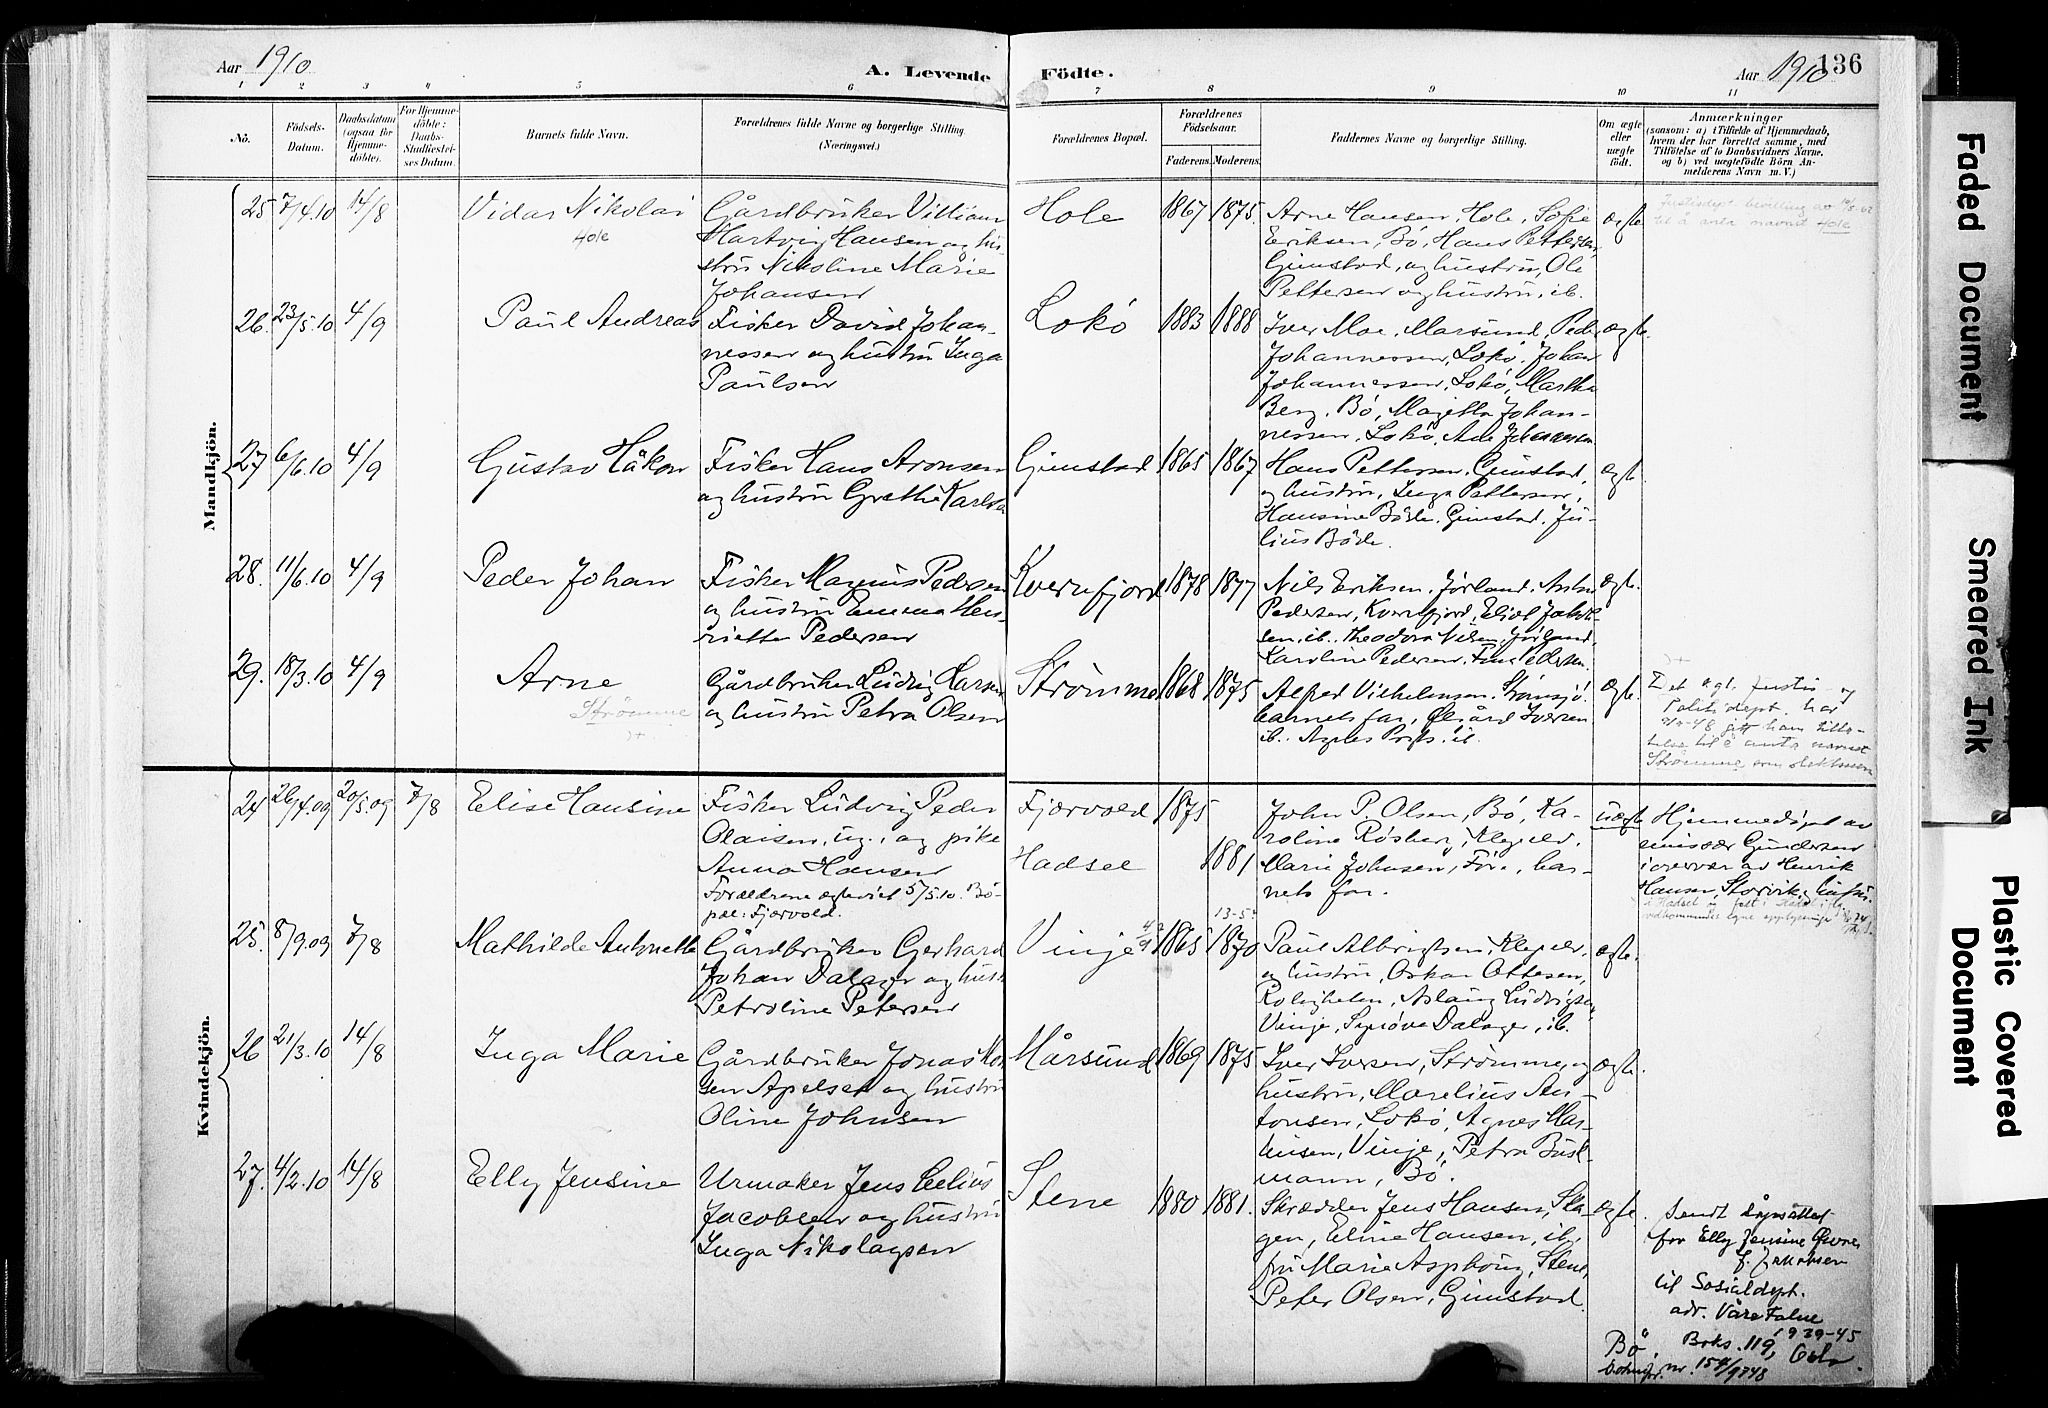 Aar 1910
A. Levende
Födte.
Aar 1910
136
1 2 3 4 5 6 7 8 9 10 11
No.
Födsels-
Datum.
Daabsdatum
(ogsaa för
Hjemme-
döbte).
For Hjemme-
döbte:
Daabs-
Stadfæstel-
ses Datum.
Barnets fulde Navn.
Forældrenes fulde Navne og borgerlige Stilling.
(Næringsvei.)
Forældrenes Bopæl.
Forældrenes
Födselsaar.
Faderens. Moderens.
Faddernes Navne og borgerlige Stilling.
Om ægte
eller
uægte
födt.
Anmærkninger
(saasom: a) i Tilfælde af Hjemmedaab,
hvem der har forrettet samme, med
Tilföielse af to Daabsvidners Navne.
og b) ved uægtefödte Börn An-
melderens Navn m. V.)
Mandkjön.
25 7/4.10 14/8
Vidar Nikolai
Hole
Gårdbruker Villiam
Hartvig Hansen og hu-
stru Nikoline Marie
Johansen
Hole
1867 1875.
Arne Hansen, Hole, Sofie
Eriksen, Bø, Hans Pettersen,
Gimstad, og hustru, Ole
Pettersen og hustru, ib.
ægte
Justisdept. bevilling av
til å anta navnet Hole
26. 23/5.10 4/9
Paul Andreas
Fisker David Johan-
nessen og hustru Inga
Paulsen
Lokø
1883 1888
Iver Moe, Marsund, Peder
Johannessen, Lokø, Johan
Johannessen, Lokø, Martha
Berg, Bø, Majetta Johan-
nessen, Lokø,
ægte.
27 6/6.10 4/9
Gustav Håkon
Fisker Hans Aronsen
og hustru Grethe Karlsen
Gimstad
1865 1867
Hans Pettersen, Gimstad,
og hustru, Inga Pettersen,
Hansine Bøde, Gimstad, Ju-
lius Bøde.
ægte
28. 11/6.10 4/9
Peder Johan
Fisker Magnus Pedersen
og hustru Emma Hen-
riette Pedersen
Kvernfjord
1878 1877
Nils Eriksen, Jørland,
Pedersen, Kvernfjord, Eliot Jakob-
sen, ib. Theodora Nilsen, Jørland,
Karoline Pedersen,
ægte.
29. 18/3.10 4/9
Arne
Strømme
Gårdbruker Ludvig Hansen
og hustru Petra Olsen
Strømme
1868 1875
Alfred Vilhelmsen, Strømsjø,
barnets far, Iversen
ib. Agnes
ægte.
Det kgl. Justis- og
Politidept. har
gitt ham tilla-
telse til å anta navnet
Strømme som slektsnavn
Kvindekjön.
24 26/4.09 20/5.09 7/8
Elise Hansine
Fisker Ludvig Peder
Olaisen, ug., og pike
Anna Hansen
Forældrene ægteviet 5/5.10. Bo-
pæl: Fjærvold.
Fjærvold 1875
Hadsel 1881
John P. Olsen, Bø, Ka-
roline Røsberg,
Marie Johnsen, Føre, bar-
nets far.
uægte
Hjemmedøpt av
emissær Gundersen
i overvær av Henrik
Hansen, Storvik,
25. 8/9.09 7/8
Mathilde Antonette
Gårdbruker Gerhard
Johan Dalager og hustru
Petroline Petersen
Vinje
1865 13-5 1870
Paul Albrigtsen,
og hustru, Oskar Ottesen,
Roligheten, Aslaug Ludvigsen,
Vinje, Synøve Dalager, ib.
ægte.
26 21/3.10 14/8
Inga Marie
Gårdbruker Jonas
Apelset og hustru
Oline Johnsen
Mårsund
1869 1875
Iver Iversen, Strømme, og
hustru, Marelius An-
tonsen, Lokø, Agnes Mar-
kusen, Vinje, Petra Busk-
mann, Bø.
ægte.
27. 4/2.10 14/8
Elly Jensine
Urmaker Jens Edius
Jacobsen og hustru
Inga Nikolaysen
Stene
1880 1881.
Skrædder Jens Hansen, Ska-
gen, Eline Hansen, ib.,
fru Marie Asphaug, Stene,
Peter Olsen, Gimstad.
ægte.
Sendt dåpsattest
for Elly Jensine
f. Jakobsen
til Sosialdept.
adr. Våre Falne
1939-45
Boks. 119, Oslo.
Bø,
nr. 154/9748
Faded Document
Smeared Ink
Plastic Covered
Document